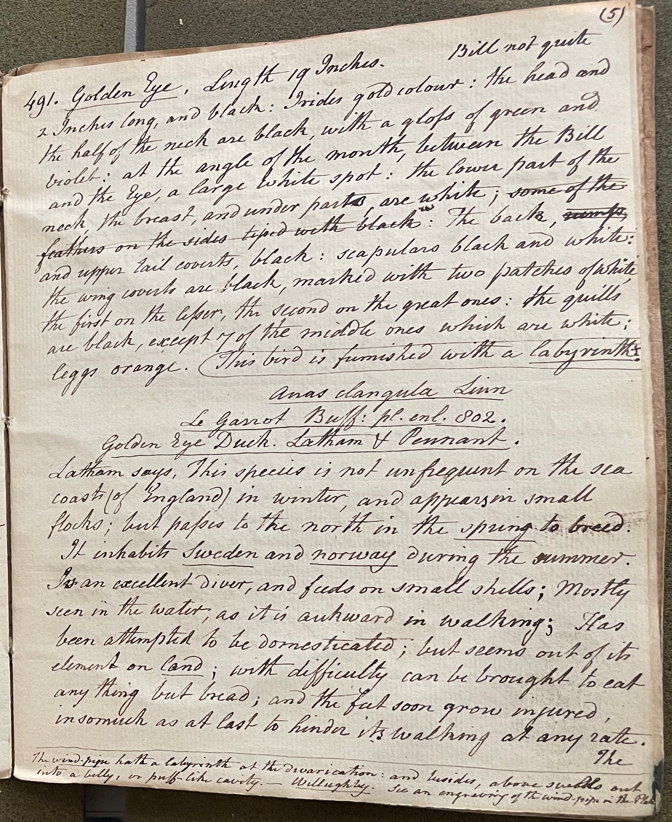 (5)
491. Golden Eye, Length 19 Inches. Bill not quite
2 Inches long, and black: Irides gold colour: the head and
the half of the neck are black, with a gloſs of green and
violet: at the angle of the mouth, between the Bill
and the Eye, a large white spot: the lower part of the
neck, the breast, and under parts, are white; some of the
feathers on the sides tiped with black: The back, rump,
and upper tail coverts, black: scapulars black and white:
the wing coverts are black, marked with two patches of white,
the first on the leſser, the second on the great ones: the quills
are black, except 7 of the middle ones which are white:
leggs orange. (This bird is furnished with a labyrinth:
Anas clangula Linn
Le Garrot Buff: pl. enl. 802.
Golden Eye Duck. Latham & Pennant.
Latham says, This species is not unfrequent on the sea
coasts (of England) in winter, and appears in small
flocks; but paſses to the north in the spring to breed.
It inhabits Sweden and norway during the summer.
Is an excellent diver, and feeds on small shells; Mostly
seen in the water, as it is aukward in walking; Has
been attempted to be domesticated; but seems out of its
element on land; with difficulty can be brought to eat
any thing but bread; and the feet soon grow injured,
insomuch as at last to hinder its walking at any rate.
The
The wind-pipe hath a labyrinth at the divarication: and besides, above swells out
into a belly, or puff-like cavity. — Willughby. See an engraving of the wind-pipe in the